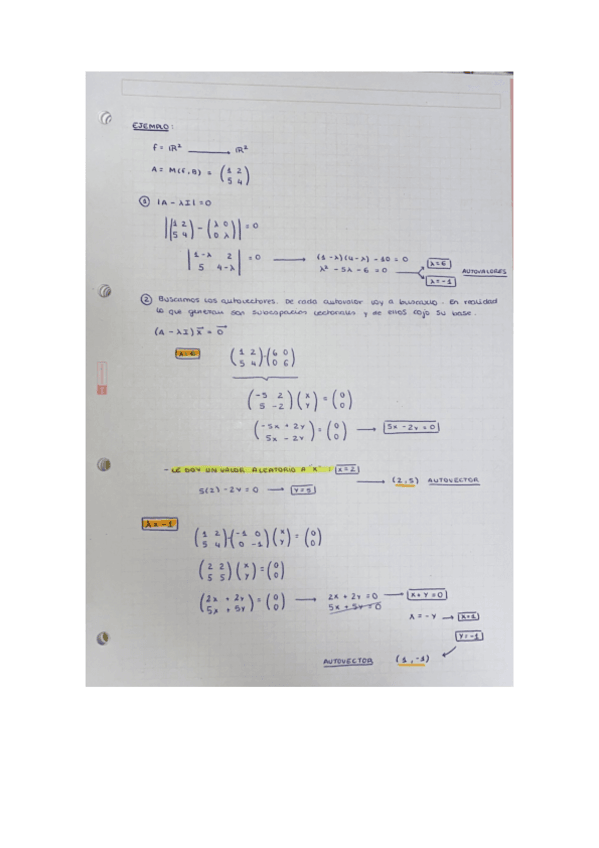 EJEMPLO:
f = ℝ² ⟶ ℝ²
A = M(f,B) = (1 2 / 5 4)
① |A - λI| = 0
|(1 2 / 5 4) - (λ 0 / 0 λ)| = 0
|1-λ 2 / 5 4-λ| = 0 ⟶ (1-λ)(4-λ) - 10 = 0
λ² - 5λ - 6 = 0 ⟶ λ=6 λ=-1 AUTOVALORES
② Buscamos los autovectores. De cada autovalor voy a buscarlo. En realidad
lo que generan son subespacios vectoriales y de ellos cojo su base.
(A - λI) x⃗ = 0⃗
λ=6 (1 2 / 5 4)-(6 0 / 0 6)
(-5 2 / 5 -2)(x / y) = (0 / 0)
(-5x + 2y / 5x - 2y) = (0 / 0) ⟶ 5x - 2y = 0
- LE DOY UN VALOR ALEATORIO A "x" : x=2
5(2) - 2y = 0 ⟶ y=5 ⟶ (2,5) AUTOVECTOR
λ=-1
(1 2 / 5 4)-(-1 0 / 0 -1)(x / y) = (0 / 0)
(2 2 / 5 5)(x / y) = (0 / 0)
(2x + 2y / 5x + 5y) = (0 / 0) ⟶ 2x + 2y = 0 ⟶ x+y=0
5x + 5y = 0
x = -y ⟶ x=1
y=-1
AUTOVECTOR (1,-1)